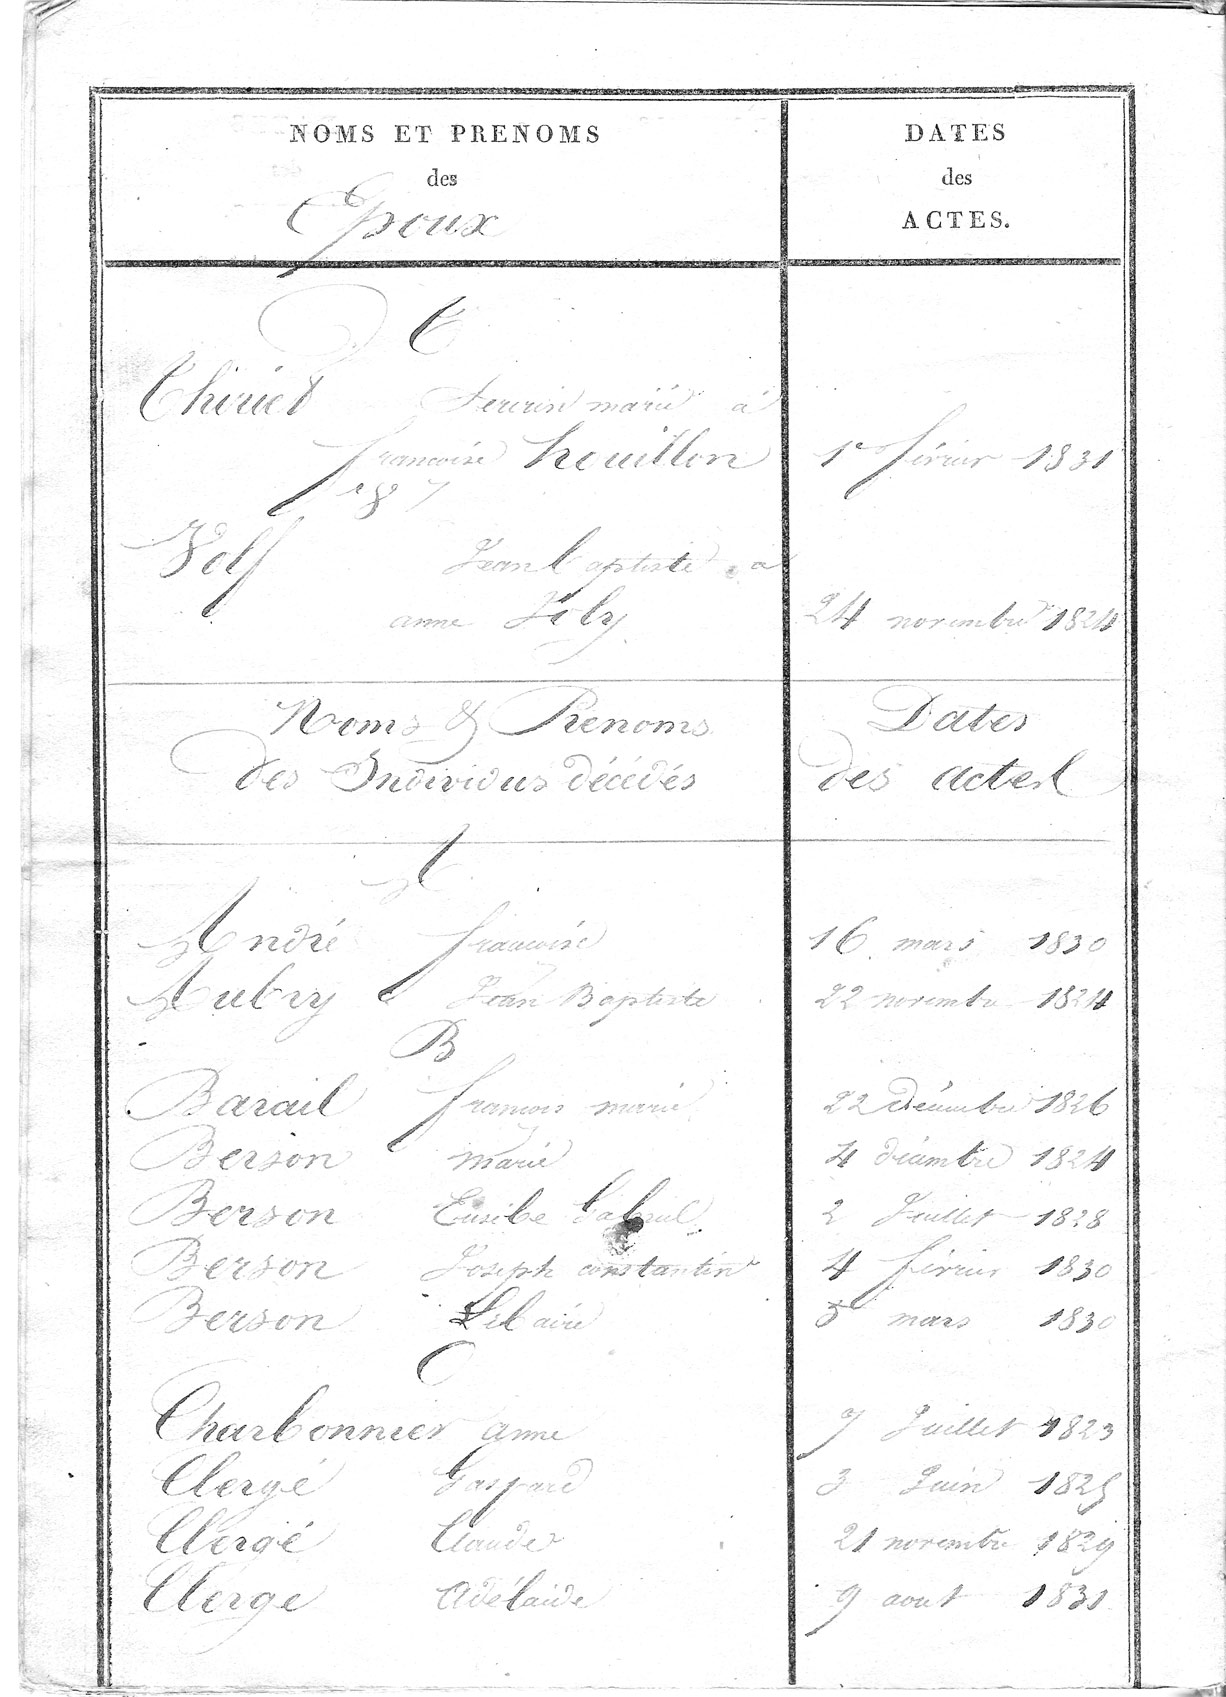 NOMS ET PRENOMS
des
Epoux
DATES
des
ACTES.
T
Thiriet Sevrin marié à
francoise houillon 1er février 1831
Jean baptiste a
anne Joly 24 novembre 1824
Noms & Prénoms Dates
des Individus décédés des actes
A
André francoise 16 mars 1830
Aubry Jean Baptiste 22 novembre 1824
B
Barail francois marie 22 décembre 1826
Berson marie 4 décembre 1824
Berson Eusèbe Gabriel 2 Juillet 1828
Berson Joseph constantin 4 février 1830
Berson Libaire 5 mars 1830
C
Charbonnier anne 7 Juillet 1823
Clergé Gaspard 3 Juin 1825
Clergé Claude 21 novembre 1829
Clerge Adélaide 9 aout 1831